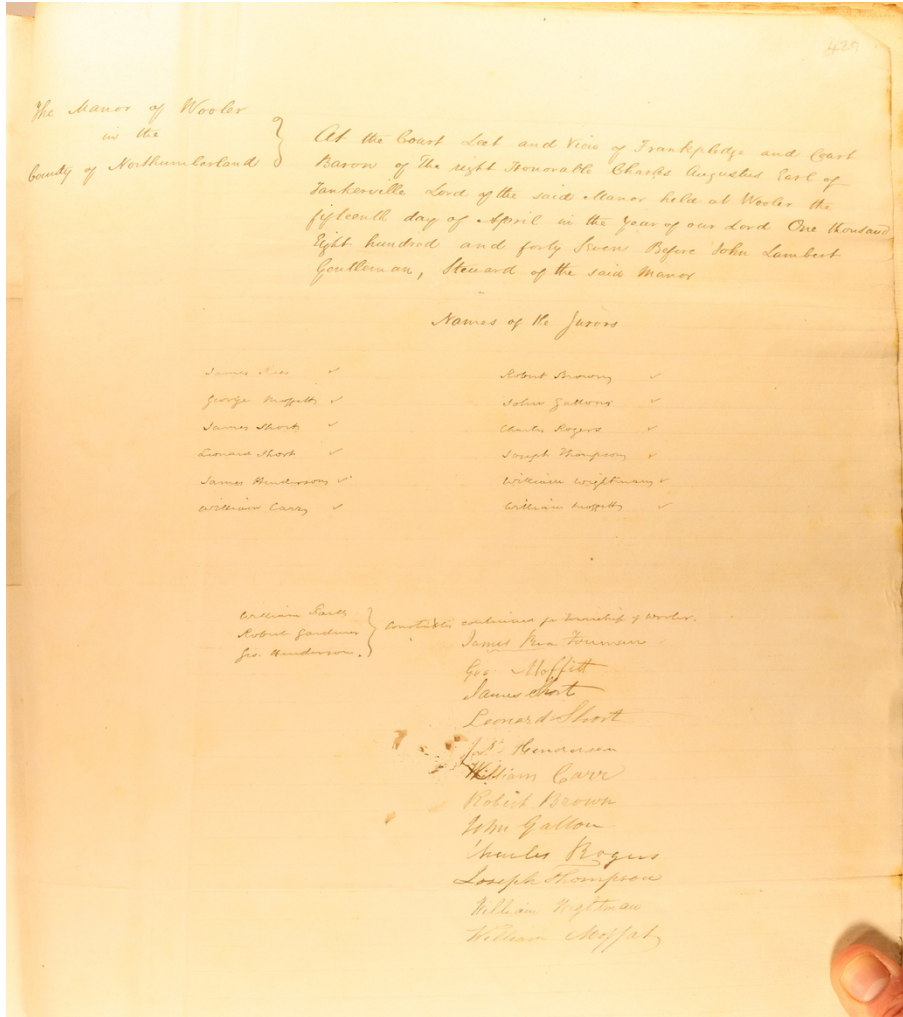 The Manor of Wooler
in the
County of Northumberland
At the Court Leet and View of Frankpledge and Court
Baron of The right Honorable Charles Augustus Earl of
Tankerville Lord of the said Manor held at Wooler the
fifteenth day of April in the Year of our Lord One thousand
Eight hundred and forty Seven Before John Lambert
Gentleman, Steward of the said Manor
Names of the Jurors
James
George Moffitt
James Short
Leonard Short
James Henderson
William Carr
Robert Brown
John Gallon
Charles Rogers
Joseph Thompson
William Wightman
William Moffitt
William
Robert Gardiner
Geo. Henderson.
Constables continued for Township of Wooler.
James Foreman
Geo. Moffitt
James Short
Leonard Short
Jas. Henderson
William Carr
Robert Brown
John Gallon
Charles Rogers
Joseph Thompson
William Wightman
William Moffat